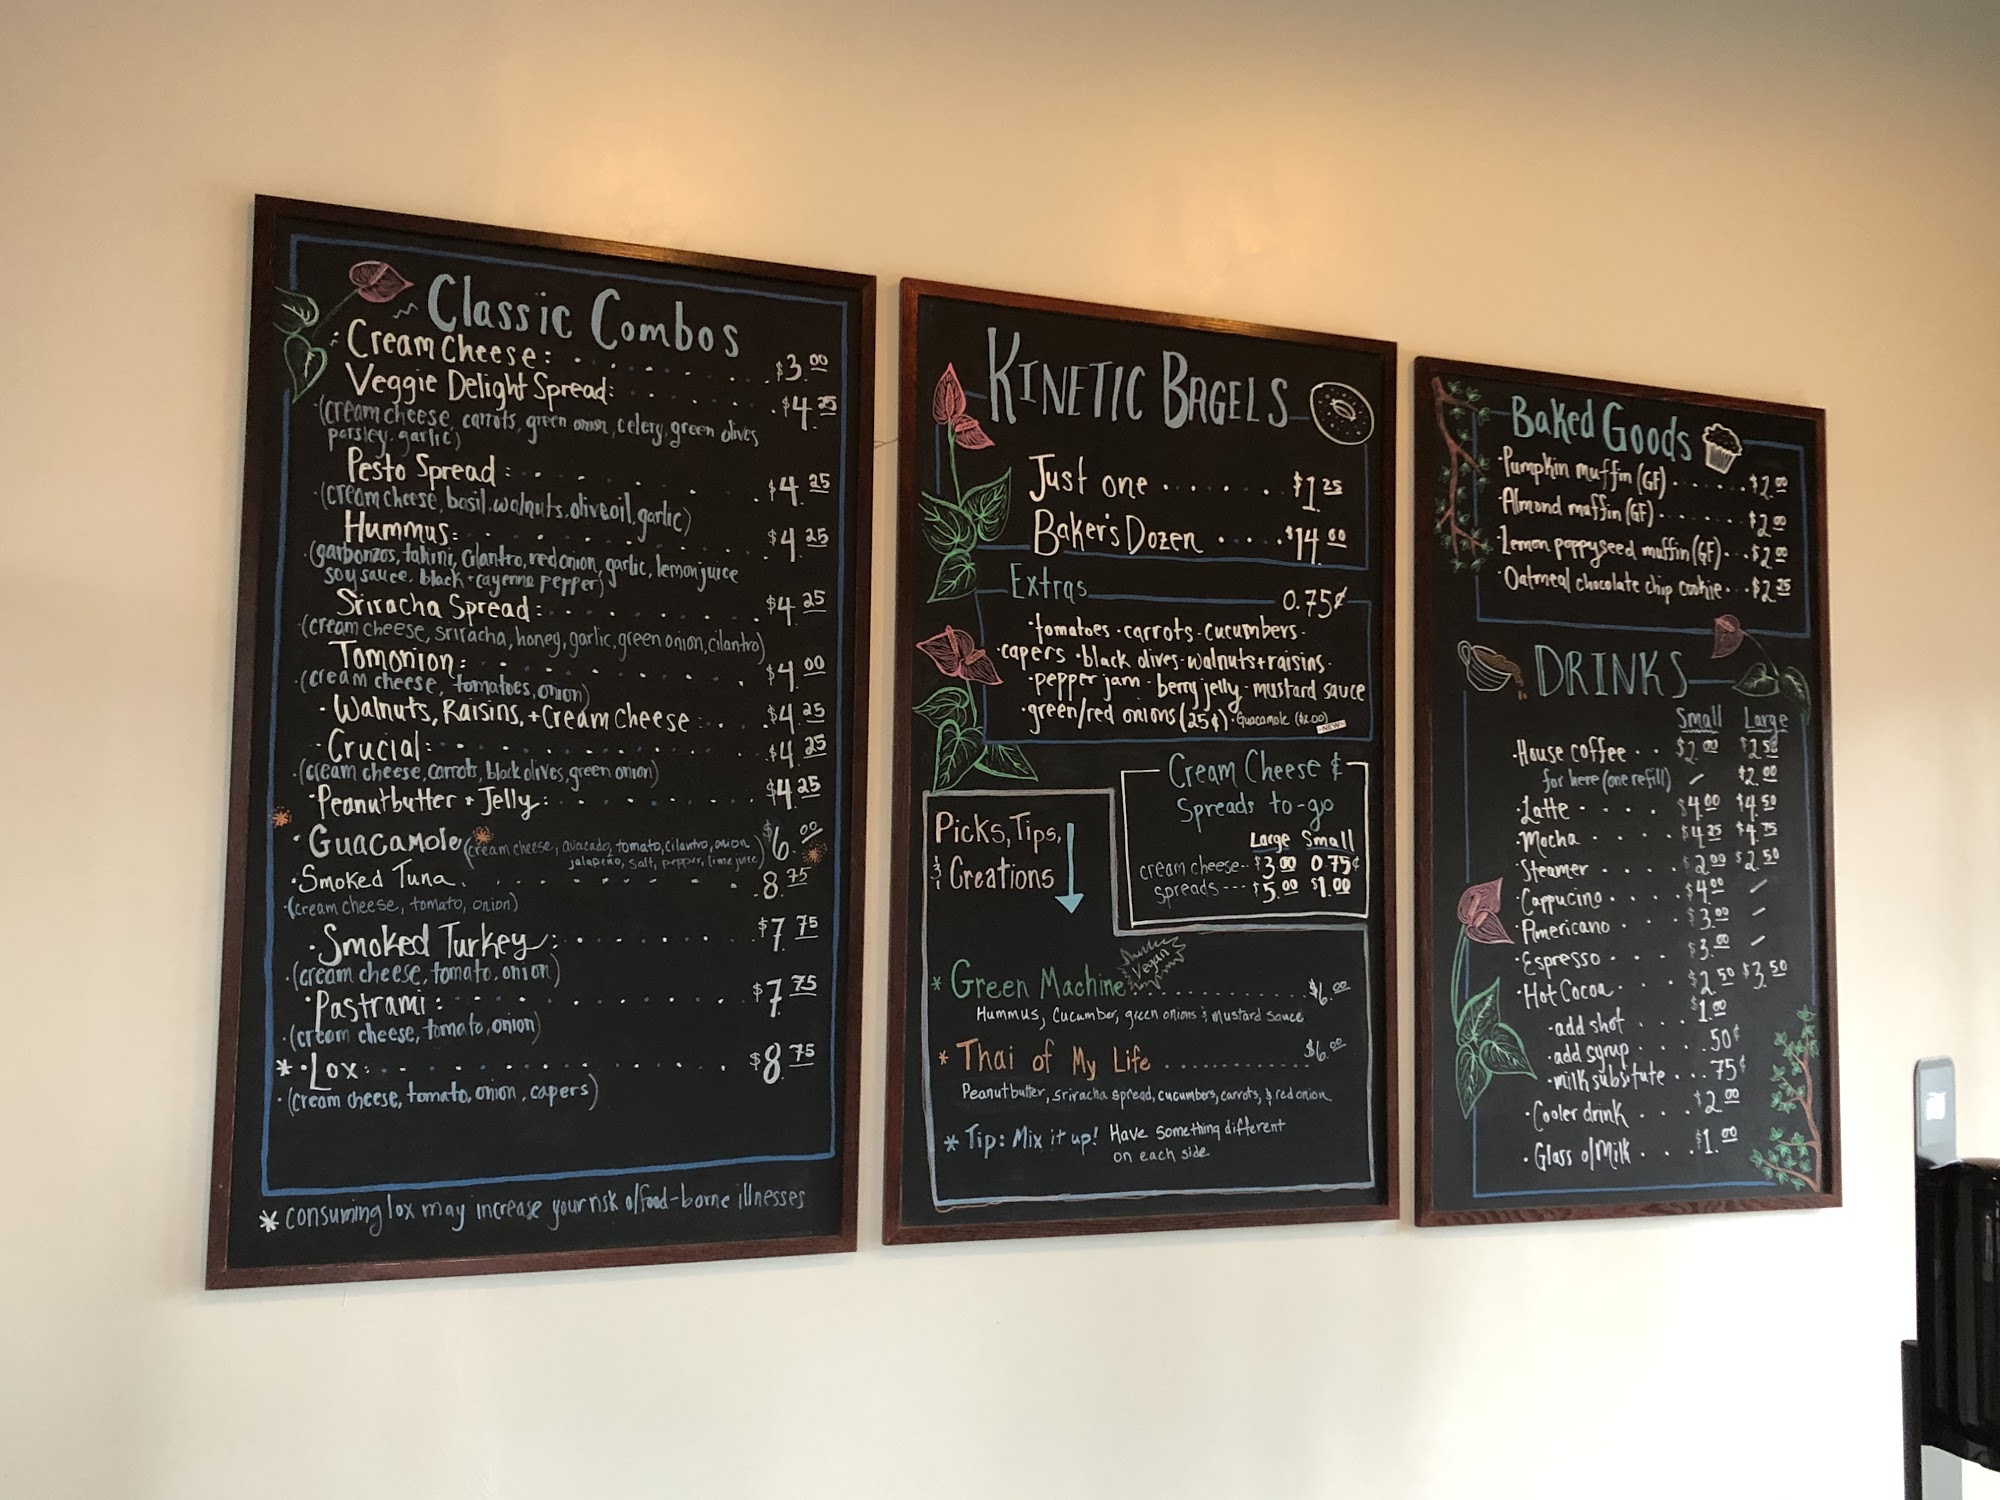 Classic Combos
Cream Cheese: $3.00
Veggie Delight Spread: $4.25
(cream cheese, carrots, green onion, celery, green olives
parsley, garlic)
Pesto Spread: $4.25
(cream cheese, basil, walnuts, olive oil, garlic)
Hummus: $4.25
(garbonzos, tahini, cilantro, red onion, garlic, lemon juice
soy sauce, black + cayenne pepper)
Sriracha Spread: $4.25
(cream cheese, sriracha, honey, garlic, green onion, cilantro)
Tomonion: $4.00
(cream cheese, tomatoes, onion)
· Walnuts, Raisins, + Cream Cheese: $4.25
· Crucial: $4.25
·(cream cheese, carrots, black olives, green onion)
· Peanutbutter + Jelly: $4.25
· Guacamole (cream cheese, avacado, tomato, cilantro, onion $6.00
jalapeño, salt, pepper, lime juice)
· Smoked Tuna 8.75
·(cream cheese, tomato, onion)
· Smoked Turkey: $7.75
·(cream cheese, tomato, onion)
· Pastrami: $7.75
·(cream cheese, tomato, onion)
* · Lox: $8.75
·(cream cheese, tomato, onion, capers)
* consuming lox may increase your risk o/food-borne illnesses
Kinetic Bagels
Just one . . . . . . $1.25
Baker's Dozen . . . . $14.00
Extras 0.75¢
· tomatoes · carrots · cucumbers ·
· capers · black olives · walnuts + raisins ·
· pepper jam · berry jelly · mustard sauce
· green/red onions (25¢) · Guacamole ($2.00)
-NEW-
Cream Cheese &
Spreads to-go
Large Small
cream cheese-- $3.00 0.75¢
spreads --- $5.00 $1.00
Picks, Tips,
& Creations
Vegan
* Green Machine $6.00
Hummus, Cucumber, green onions & mustard sauce
* Thai of My Life $6.00
Peanutbutter, sriracha spread, cucumbers, carrots, & red onion
* Tip: Mix it up! Have something different
on each side
Baked Goods
· Pumpkin muffin (GF) $2.00
· Almond muffin (GF) $2.00
· Lemon poppyseed muffin (GF) $2.00
· Oatmeal chocolate chip cookie $2.25
Drinks
Small Large
· House coffee . . $2.00 $2.50
for here (one refill) / $2.00
· Latte $4.00 $4.50
· Mocha $4.25 $4.75
· Steamer $2.00 $2.50
· Cappucino $4.00 /
· Americano $3.00 /
· Espresso $3.00 /
· Hot Cocoa $2.50 $3.50
· add shot . . . $1.00
· add syrup . . . .50¢
· milk substitute . . . 75¢
· Cooler drink . . . $2.00
· Glass o/Milk . . . $1.00